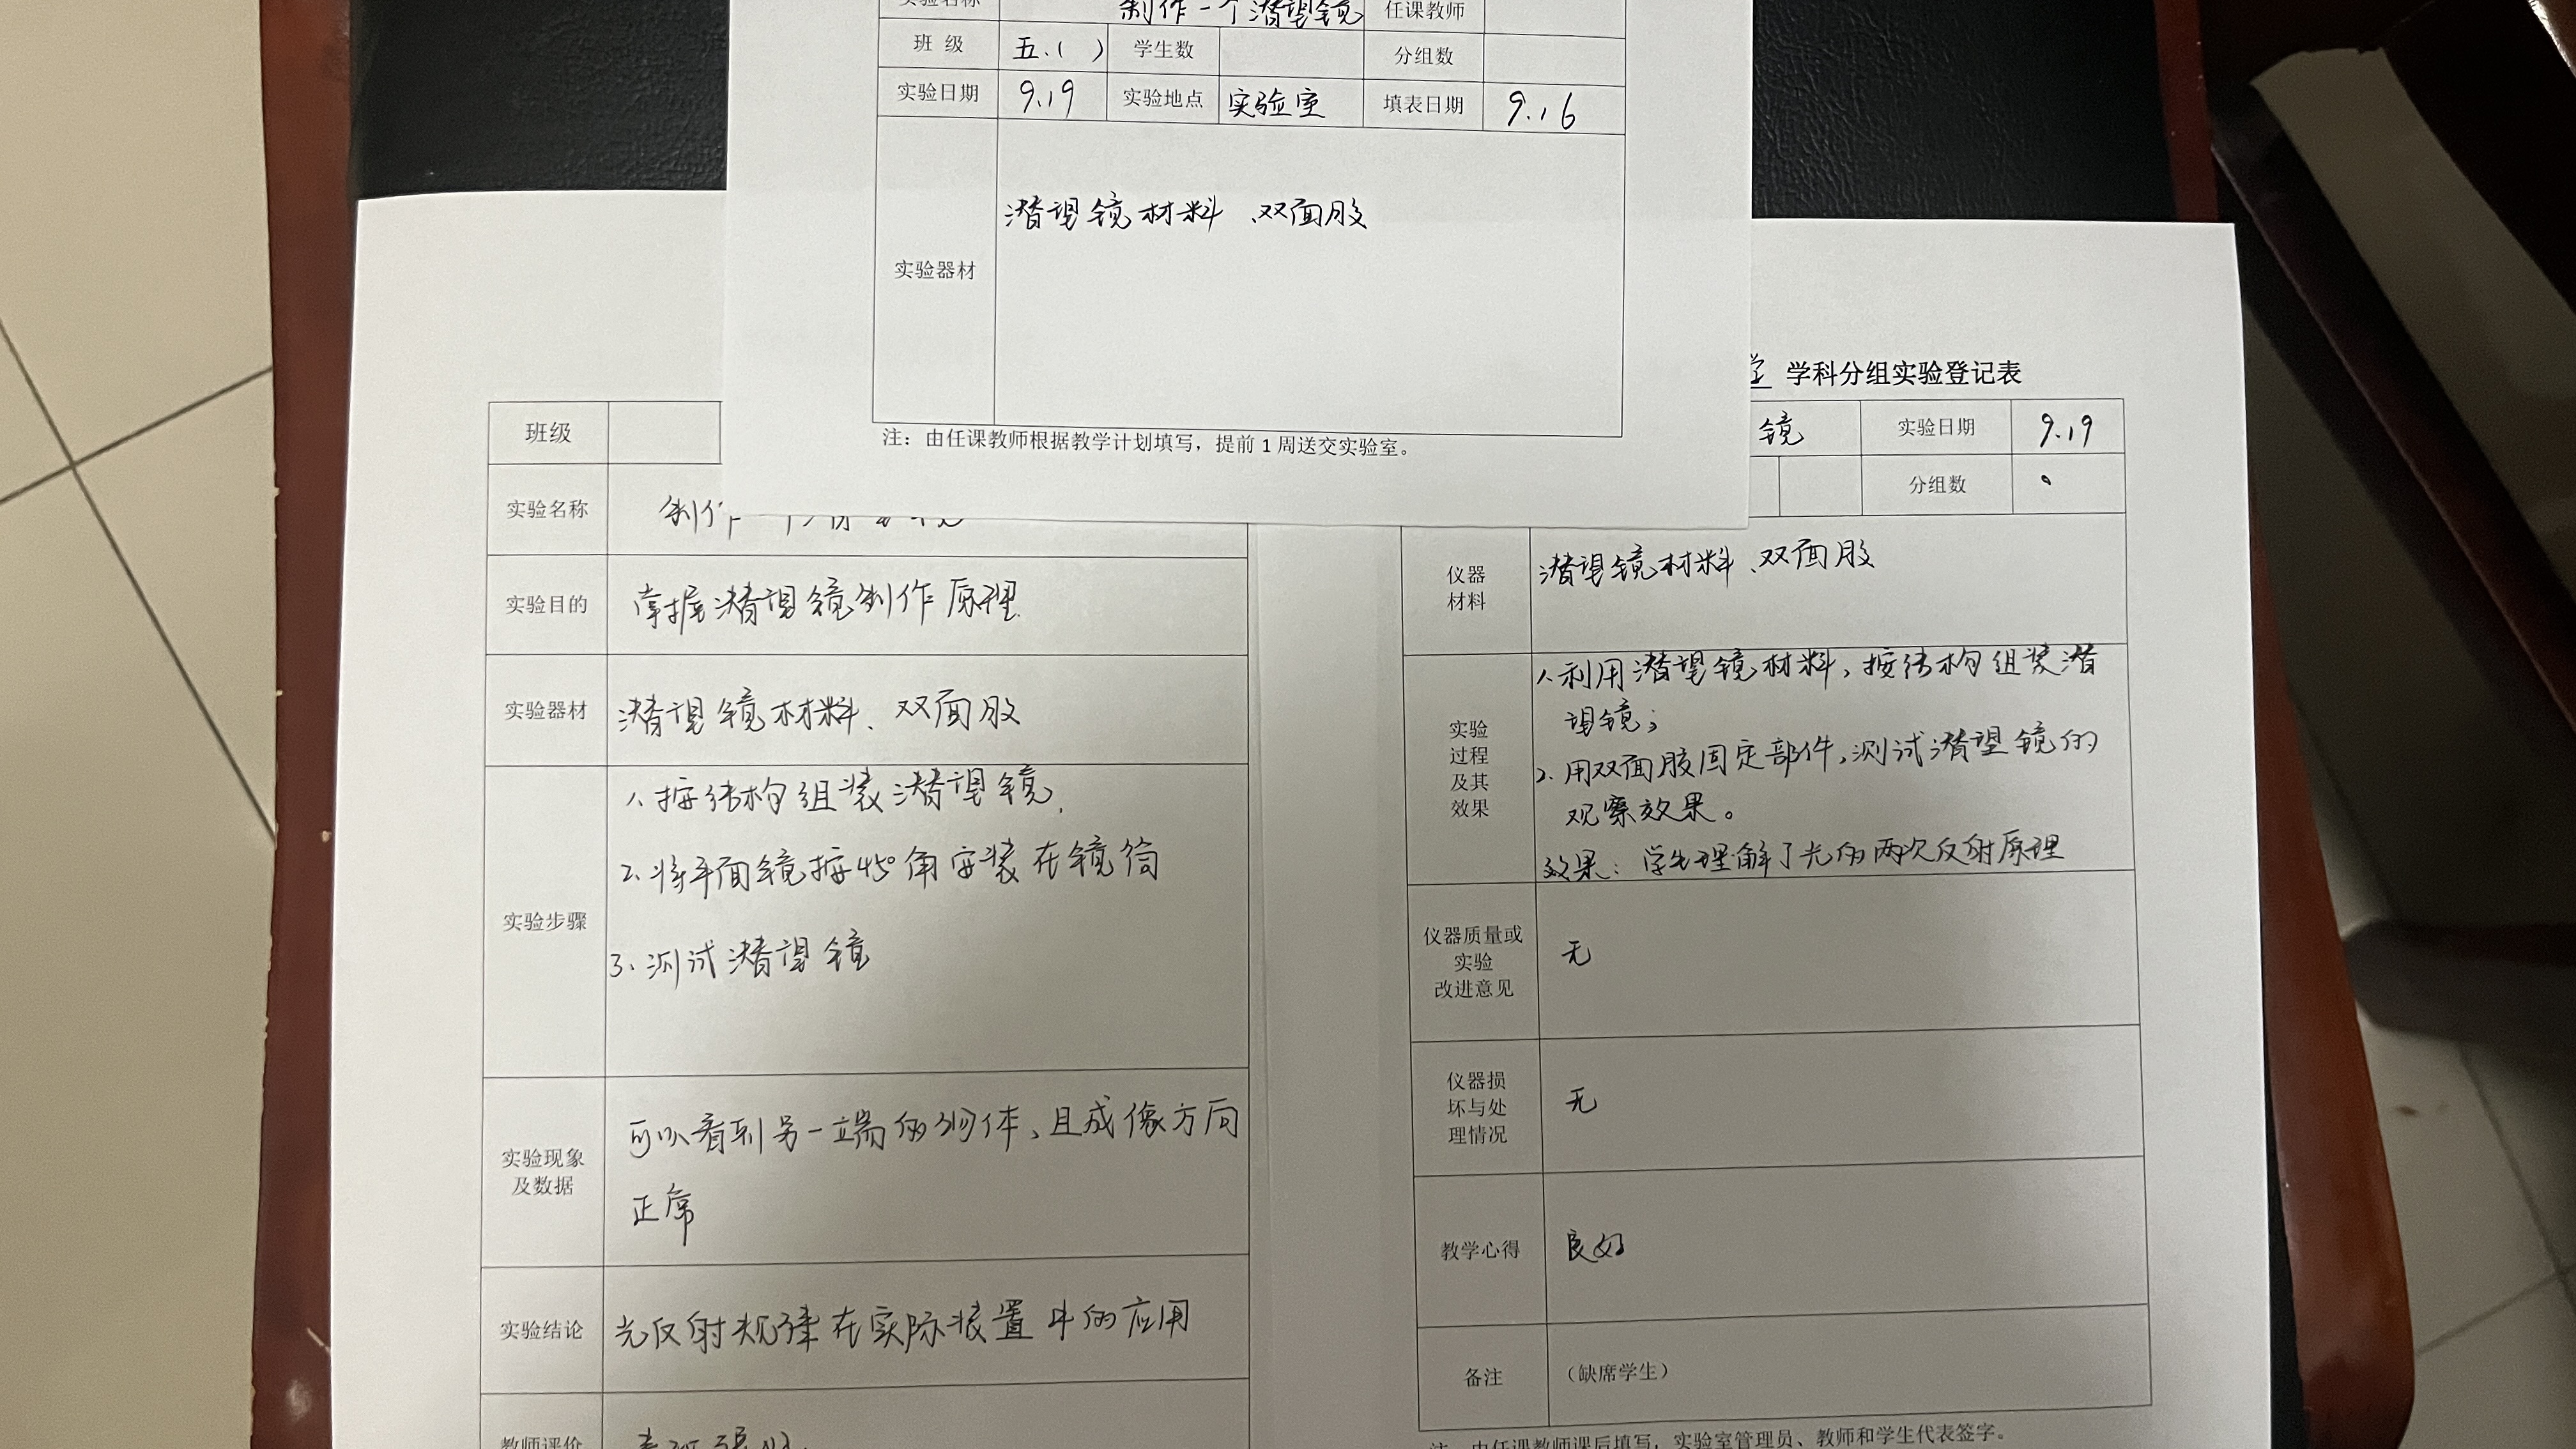 实验名称 制作一个潜望镜 任课教师
班 级 五.( ) 学生数 分组数
实验日期 9.19 实验地点 实验室 填表日期 9.16
实验器材 潜望镜材料、双面胶
注：由任课教师根据教学计划填写，提前 1 周送交实验室。
班级
实验名称 制作一个
实验目的 掌握潜望镜制作原理.
实验器材 潜望镜材料、双面胶
实验步骤
1.按结构组装潜望镜.
2.将平面镜按45°角安装在镜筒
3.测试潜望镜
实验现象
及数据
可以看到另一端的物体、且成像方向
正常
实验结论 光反射规律在实际装置中的应用
教师评价
学科分组实验登记表
镜 实验日期 9.19
分组数
仪器
材料
潜望镜材料、双面胶
实验
过程
及其
效果
1.利用潜望镜材料,按结构组装潜
望镜;
2.用双面胶固定部件,测试潜望镜的
观察效果。
效果：学生理解了光的两次反射原理
仪器质量或
实验
改进意见
无
仪器损
坏与处
理情况
无
教学心得 良好
备注 （缺席学生）
注：由任课教师课后填写，实验室管理员、教师和学生代表签字。